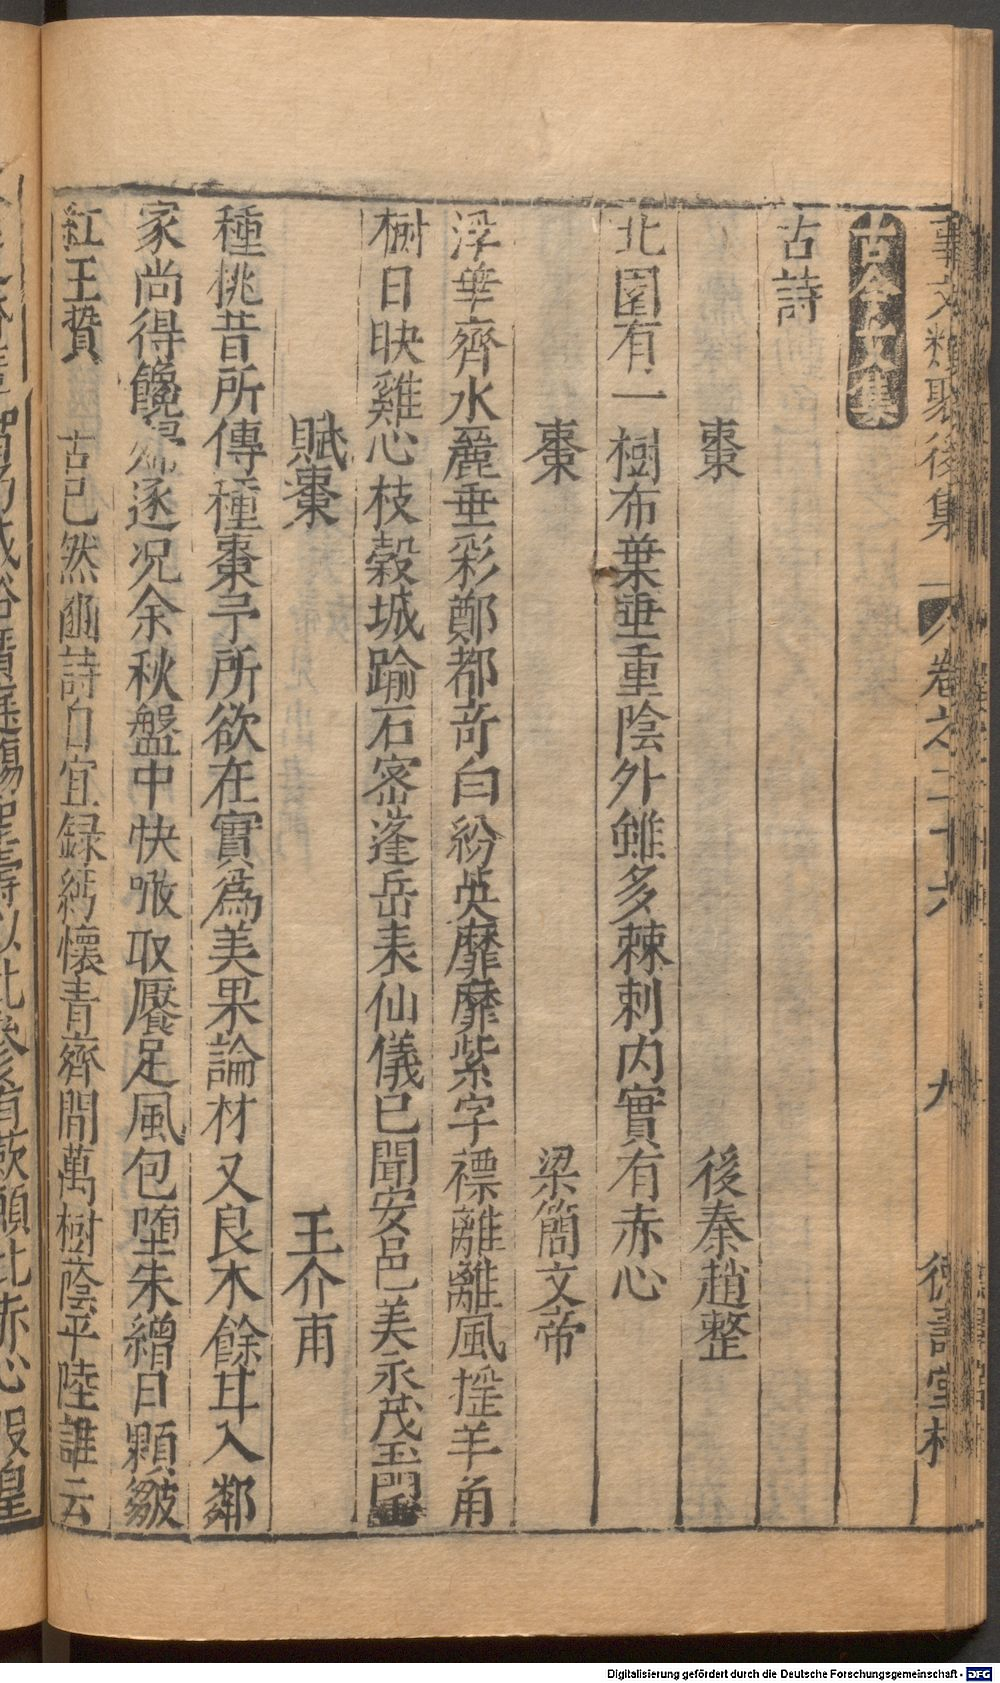 事文類聚後集 卷之二十六 九 德壽堂梓
古今文集
古詩
棗 後秦趙整
北園有一樹布葉垂重陰外雖多棘刺内實有赤心
棗 梁簡文帝
浮華齊水麗垂彩鄭都奇白紛英靡靡紫字標離離風搖羊角
樹日映雞心枝穀城踰石蜜蓬岳表仙儀已聞安邑美永茂玉門垂
賦棗 王介甫
種桃昔所傳種棗予所欲在實爲美果論材又良木餘甘入鄰
家尚得饞逐况余秋盤中快噉取饜足風包墮朱繒日顆皺
紅玉贄 古已然豳詩自宜録緬懷青齊間萬樹蔭平陸誰云
Digitalisierung gefördert durch die Deutsche Forschungsgemeinschaft - DFG